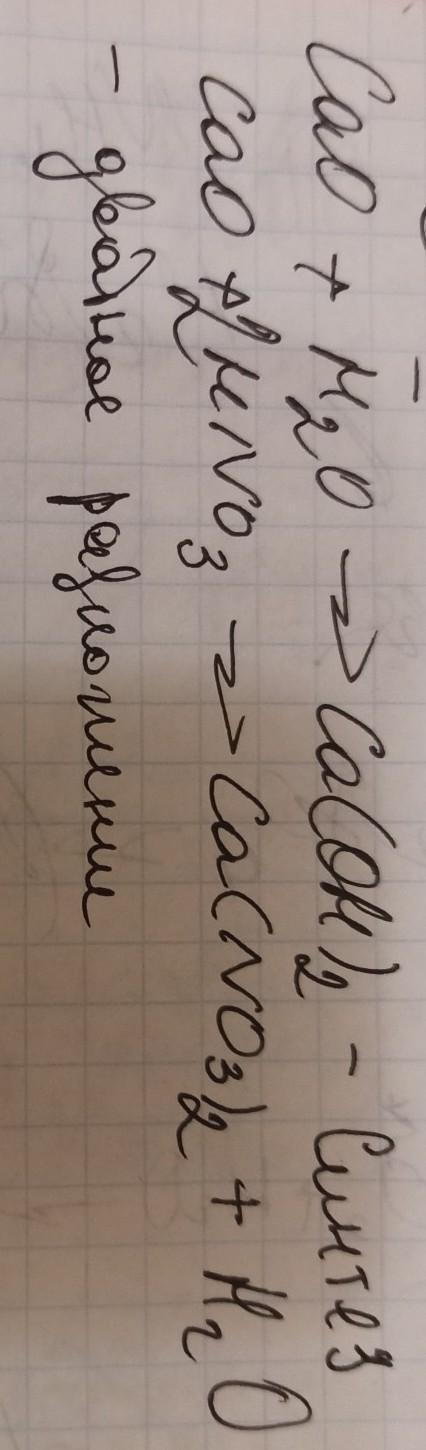 CaO + H₂O → Ca(OH)₂ - Синтез
CaO + 2HNO₃ → Ca(NO₃)₂ + H₂O
- двойное разложение